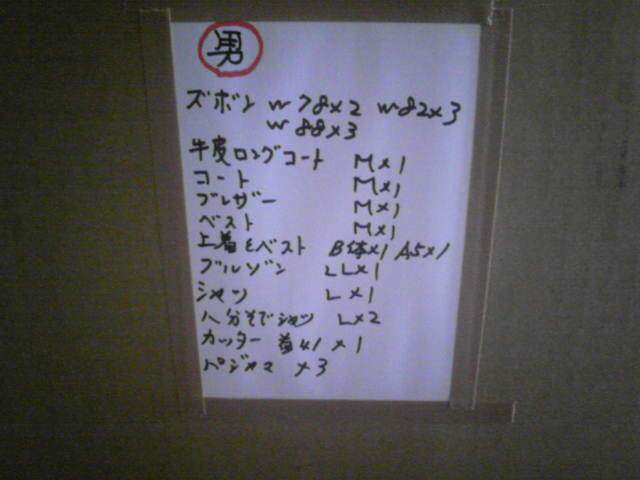 男
ズボン W78×2 W82×3
W88×3
牛皮ロングコート M×1
コート M×1
ブレザー M×1
ベスト M×1
上着&ベスト B体×1 A5×1
ブルゾン LL×1
シャツ L×1
八分そでシャツ L×2
カッター 首41×1
パジャマ ×3